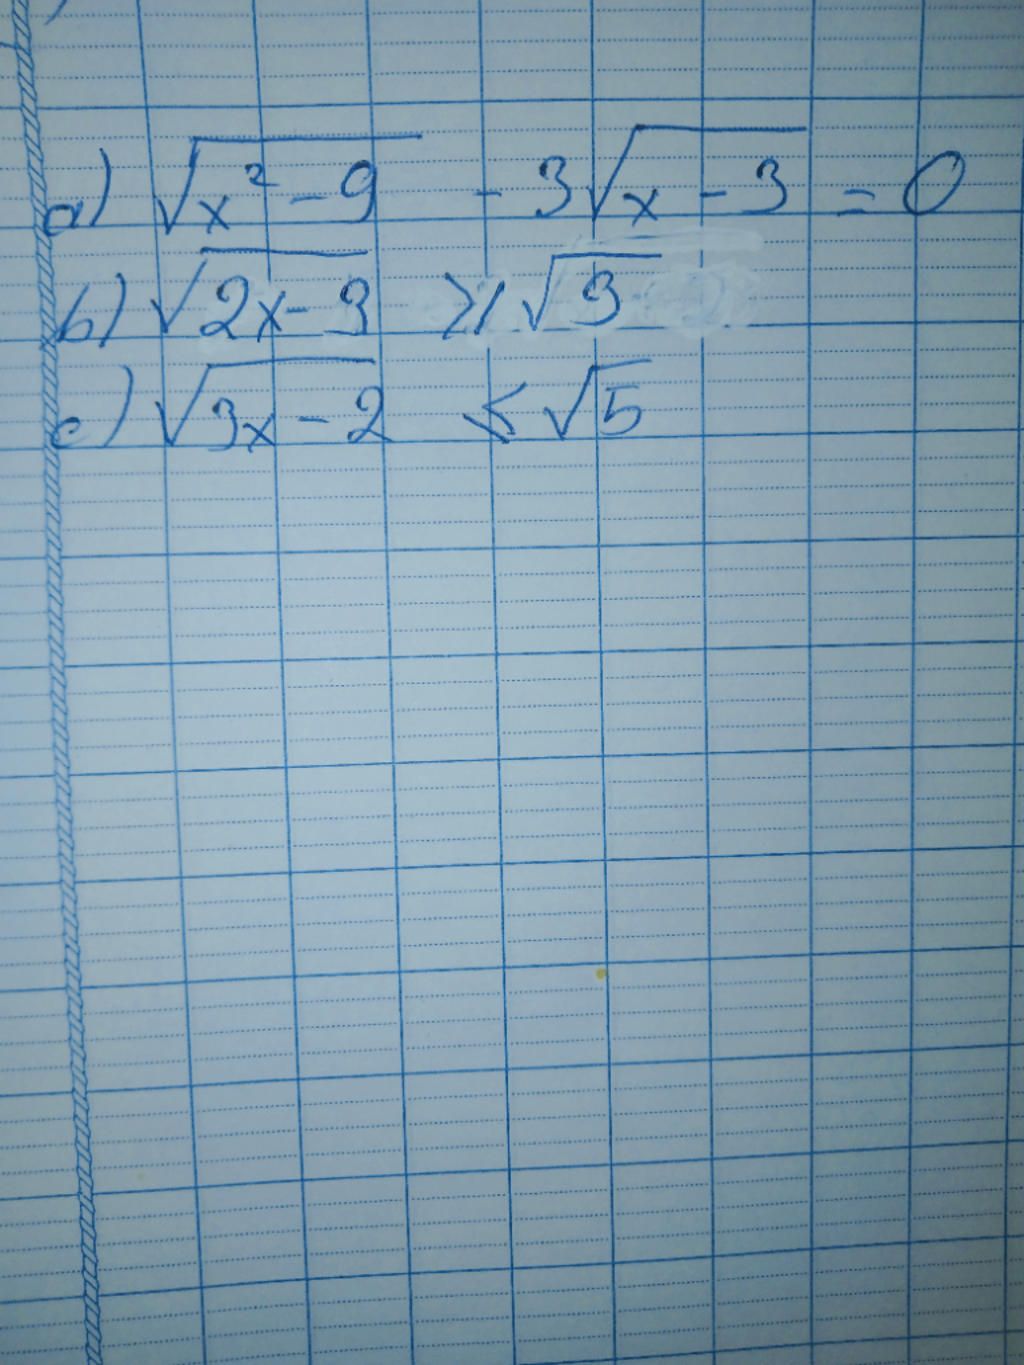 a) √(x² - 9) - 3√(x - 3) = 0
b) √(2x - 3) ⩾ √3
c) √(3x - 2) ⩽ √5